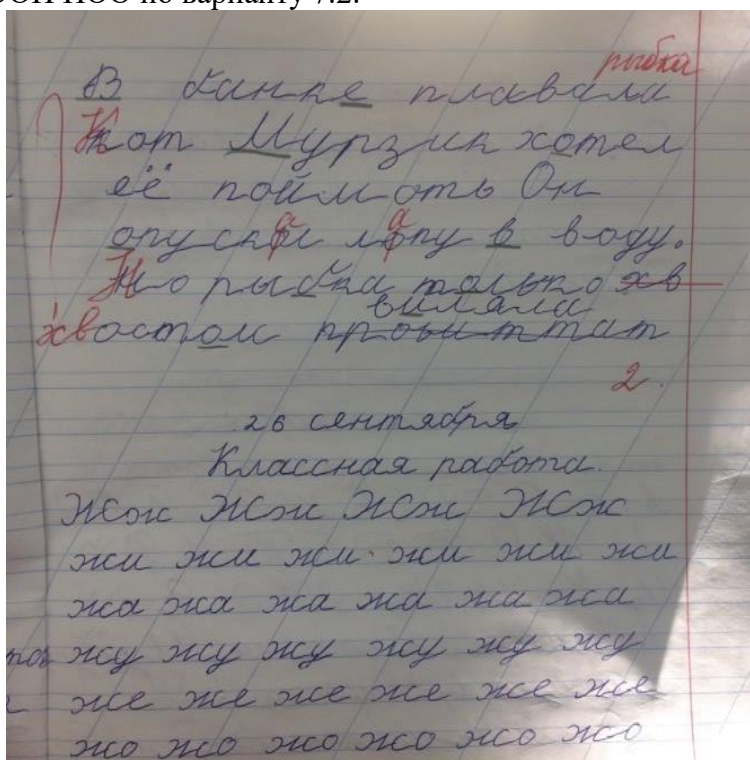 ООП НОО по варианту 7.2.
рыбка
В банке плавала
Кот Мурзик хотел
её поймоть Он
опускал лапу в воду.
Но рыбка только хв
виляла
хвостом
2.
26 сентября
Классная работа.
Жж Жж Жж Жж
жи жи жи жи жи жи
жа жа жа жа жа жа
жу жу жу жу жу жу
же же же же же же
жо жо жо жо жо жо